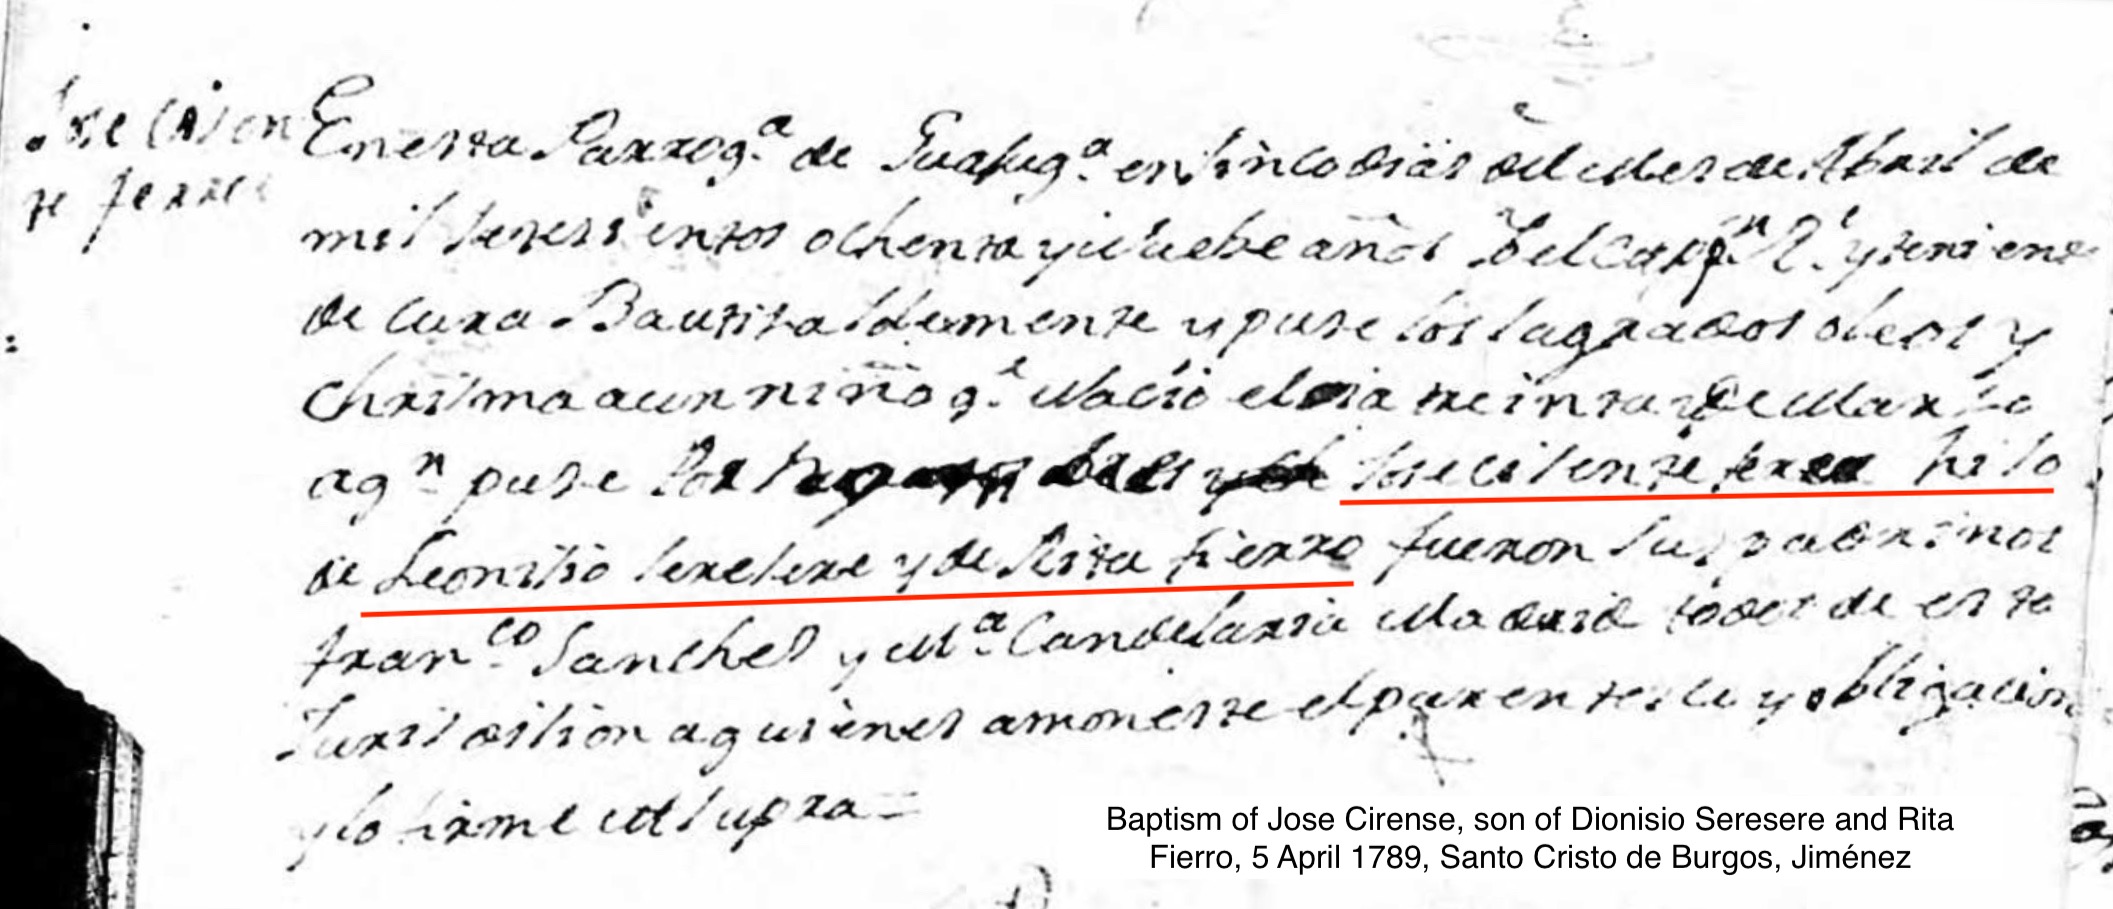 Jose Cisen
te ferre
En esta Parroq.a de Guajuq.a en sinco dias del Mes de Abril de
mil setesientos ochenta y Nuebe años Yo el Capp.n R.l y teniente
de Cura Bautisa solemente y puse los sagrados oleos y
Chrisma a un niño q.e Nacio el dia treinta de Marso
a q.n puse Por Jose cisente hilo
de Leonisio seresere y de Rita fierro fueron sus padrinos
fran.co Sanches y M.a Candelaria Madrid todos de esta
Jurisdision a quienes amoneste el parentesco y obligacion
y lo firme ut supra =
Baptism of Jose Cirense, son of Dionisio Seresere and Rita
Fierro, 5 April 1789, Santo Cristo de Burgos, Jiménez